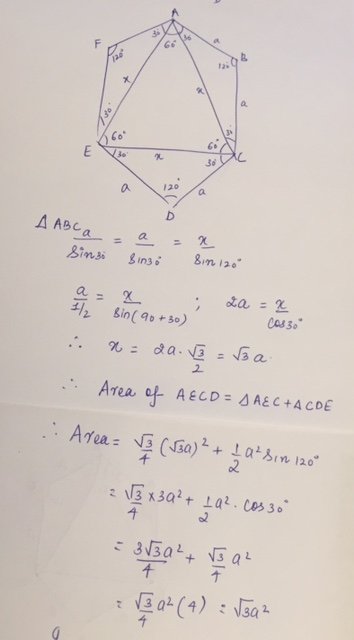 A
30 30
60°
F
a
120°
120 B
x
x
a
30°
30
60° 60°
E 30° x 30° C
a 120° a
D
Δ ABC
a/Sin30 = a/Sin30 = x/Sin120°
a/1/2 = x/Sin(90+30) ; 2a = x/cos30°
∴ x = 2a·√3/2 = √3 a.
∴ Area of AECD = ΔAEC + ΔCDE
∴ Area = √3/4 (√3a)² + 1/2 a² Sin 120°
= √3/4 × 3a² + 1/2 a² · cos 30°
= 3√3a²/4 + √3/4 a²
= √3/4 a² (4) = √3a²